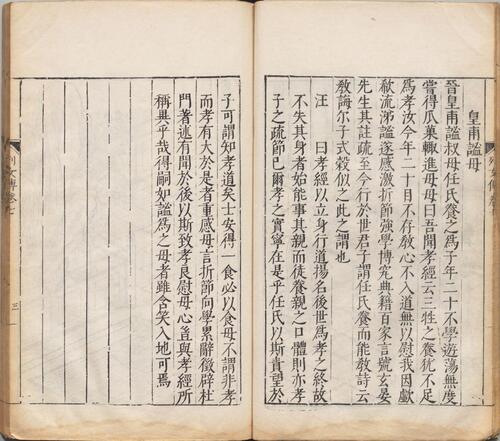 皇甫謐母
晉皇甫謐叔母任氏養之爲子年二十不學遊蕩無度
嘗得瓜菓輒進母母曰吾聞孝經云三牲之養猶不足
爲孝汝今年二十目不存教心不入道無以慰我因歔
欷流涕謐遂感激折節强學博究典籍百家言號玄晏
先生其註疏至今行於世君子謂任氏養而能教詩云
教誨尔子式穀似之此之謂也
汪 曰孝經以立身行道揚名後世爲孝之終故
不失其身者始能事其親而徒養親之口體則亦孝
子之疏節巳爾孝之實寧在是乎任氏以斯責望於
子可謂知孝道矣士安得一食必以食母不謂非孝
而孝有大於是者重感母言折節向學累辭徵辟杜
門著述有聞於後以斯致孝良慰母心豈與孝經所
稱異乎哉得嗣如謐爲之母者雖含笑入地可焉
列女傳卷七
三